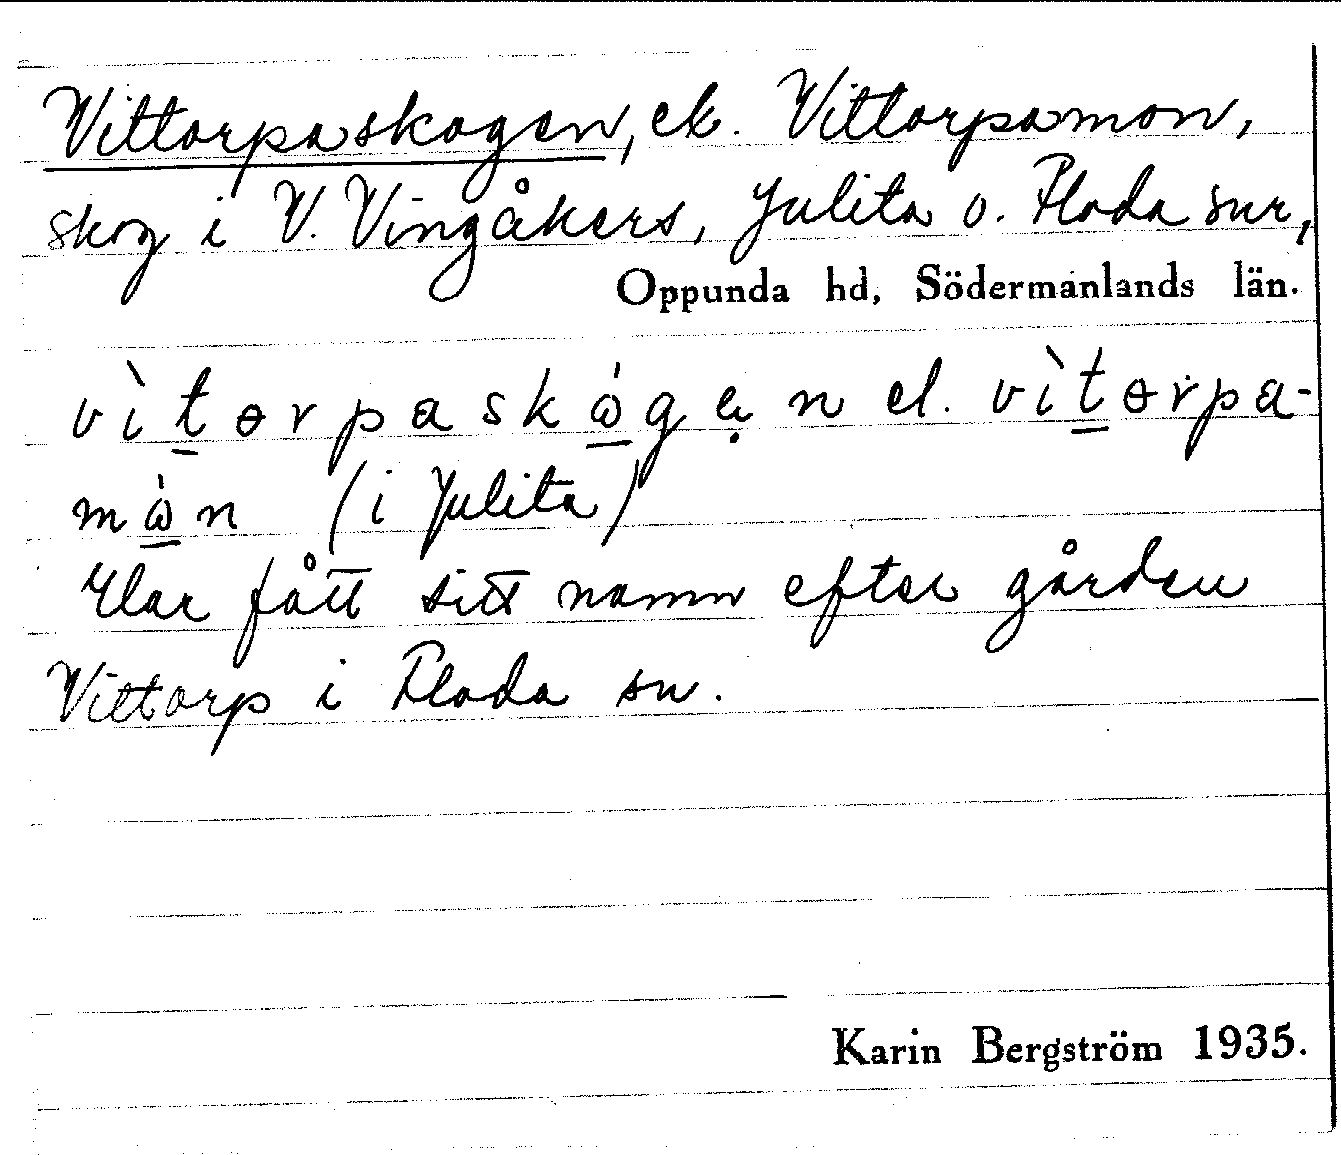 Vittorpaskogen, el. Vittorpamon,
skog i V. Vingåkers, Julita o. Floda snr,
Oppunda hd, Södermanlands län.
vìt̲ɵrpaskὼ̲gẹn el. vìt̲ɵrpa-
mὼ̲n (i Julita)
Har fått sitt namn efter gården
Vittorp i Floda sn.
Karin Bergström 1935.